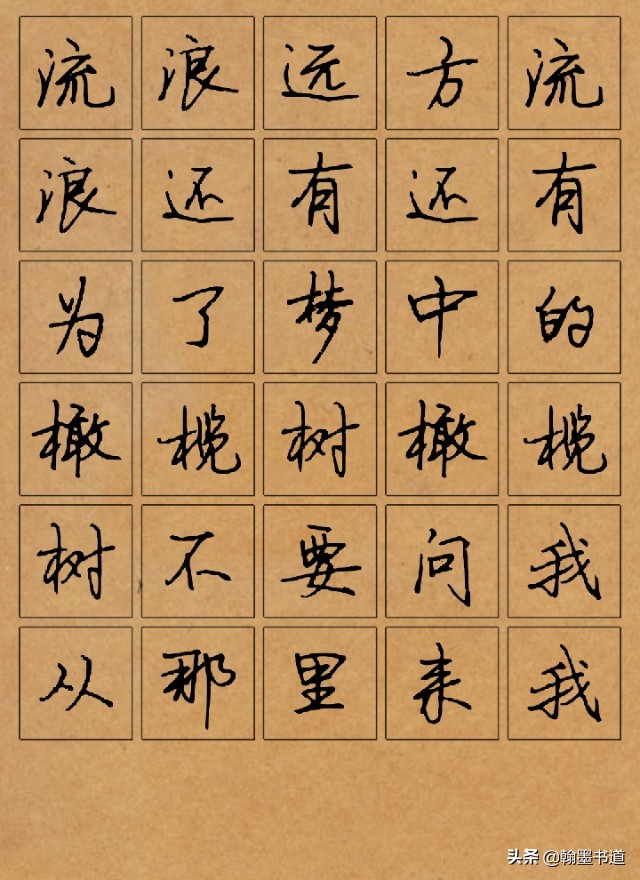 流浪远方流
浪还有还有
为了梦中的
橄榄树橄榄
树不要问我
从那里来我
头条 @翰墨书道